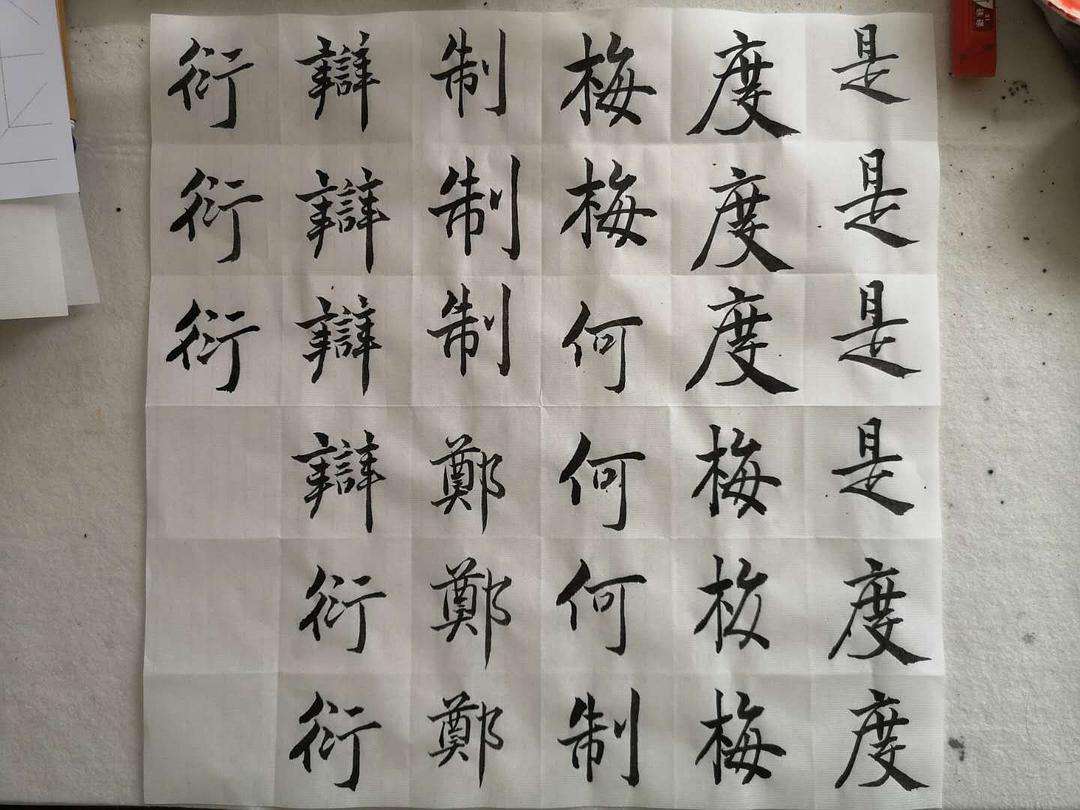 是是是是度度
度度度梅梅
梅梅何何何制
制制制鄭鄭鄭
辯辯辯辯衍衍
衍衍衍